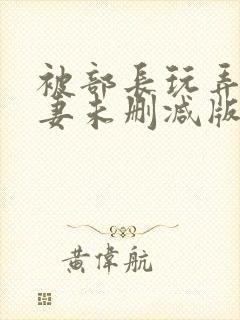 被部長玩弄
妻未删减版
黄偉航